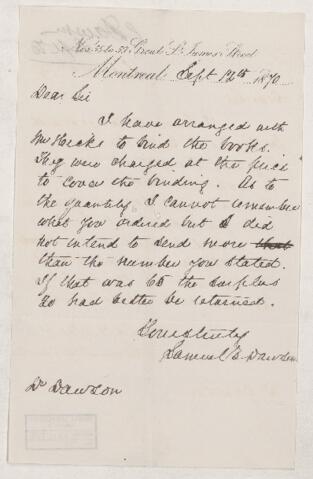 Nos. 55 to 59 Great St. James Street
Montreal Sept 12th 1870
Dear Sir
I have arranged with
Mr Hicks to bind the books.
They were charged at the price
to cover the binding. As to
the quantity I cannot remember
what you ordered but I did
not intend to send more that
than the number you stated.
If that was 65 the surplus
had better be returned.
Yours truly
Samuel E. Dawson
Dr Dawson